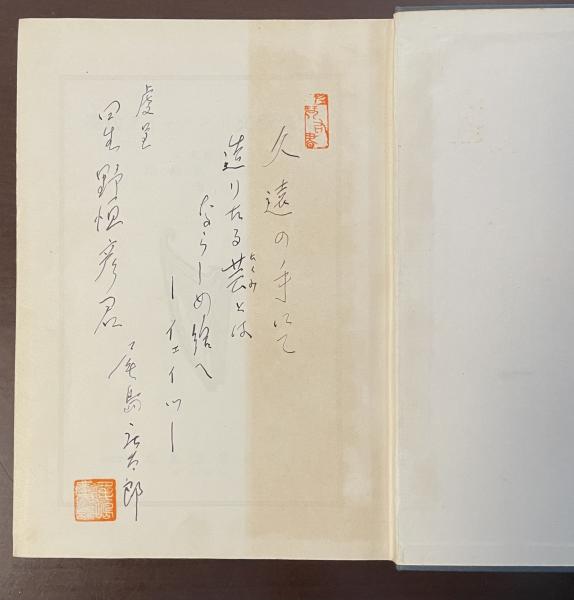 久遠の手にて
造りたる芸とは
ならしめ給へ
―イェイツ―
虔呈
星野恒彦君
尾島庄太郎